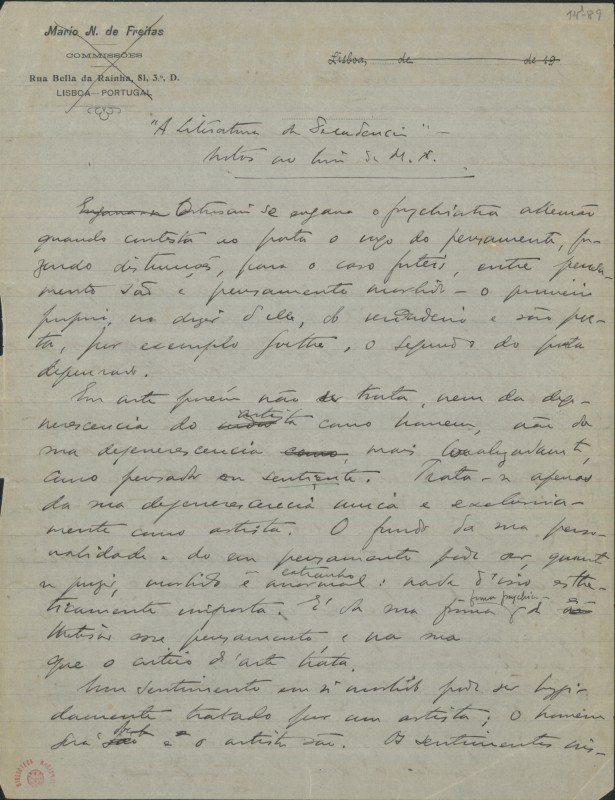 14⁴-89
Mario N. de Freitas
COMMISSÕES
Rua Bella da Rainha, 81, 3.º, D.
LISBOA - PORTUGAL
Lisboa, de de 19
"A Literatura da Decadencia" –
Notas ao livro de M. N.
se engana o psychiatra allemão
quando contesta ao poeta o uso do pensamento,
distincção, para o caso futeis, entre pensa-
mento são e pensamento morbido – o primeiro
proprio, no dizer d'elle, do verdadeiro e são poe-
ta, por exemplo Goethe, o segundo do poeta
degenerado.
Em arte porém não se trata, nem da dege-
nerescencia do artista como homem, não da
sua degenerescencia como, mais
como pensador ou sentiente. Trata-se apenas
da sua degenerescencia unica e exclusiva-
mente como artista. O fundo da sua perso-
nalidade e do seu pensamento pode ser, quanto
se quizer, morbido e anormal: nada d'isso esthe-
estranho
ticamente importa. É da sua forma de
forma psychica
esse pensamento, e na sua
que o criterio d'arte trata.
Um sentimento em si morbido pode ser hygie-
nicamente tratado por um artista; o homem
será e o artista são. Os sentimentos
BIBLIOTECA NACIONAL